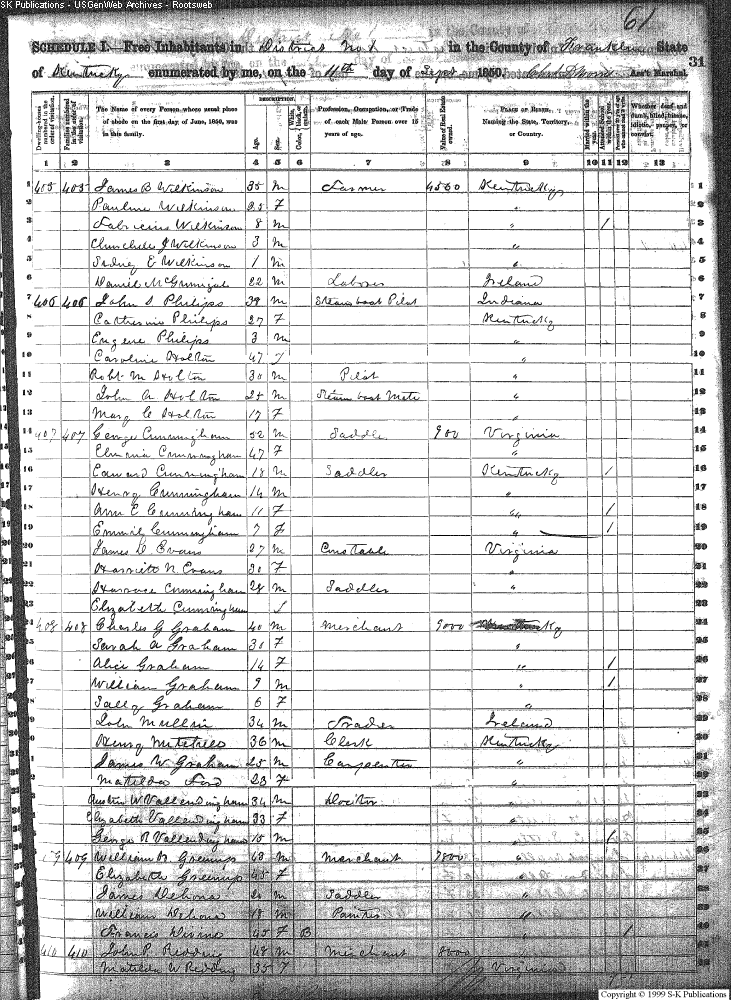 SK Publications - USGenWeb Archives - Rootsweb
61
SCHEDULE I. Free Inhabitants in District No 1 in the County of Franklin State 31
of Kentucky enumerated by me, on the 11th day of Sept 1850. Ass't Marshal.
Dwelling-houses numbered in the order of visitation.
Families numbered in the order of visitation.
The Name of every Person whose usual place of abode on the first day of June, 1850, was in this family.
DESCRIPTION.
Age.
Sex.
White, black, or mulatto.
Profession, Occupation, or Trade of each Male Person over 15 years of age.
Value of Real Estate owned.
PLACE OF BIRTH. Naming the State, Territory, or Country.
Married within the year.
Whether deaf and dumb, blind, insane, idiotic, pauper, or convict.
1 2 3 4 5 6 7 8 9 10 11 12 13
1 405 405 James B Wilkinson 35 M Farmer 4500 Kentucky 1
Pauline Wilkinson 25 F "
Fabricius Wilkinson 8 M " /
Wilkinson 3 M "
Sidney E Wilkinson 1 M "
Daniel 22 M Laborer Ireland
406 406 John S Philips 39 M Steam boat Pilot Indiana
Catherine Philips 27 F Kentucky
Eugene Philips 3 M "
Caroline Holton 47 F "
Robt M Holton 30 M Pilot "
John A Holton 25 M Steam boat Mate "
Mary C Holton 17 F "
407 407 George Cunningham 52 M Saddler 900 Virginia
Cunningham 47 F "
Edward Cunningham 18 M Saddler Kentucky /
Henry Cunningham 14 M "
Ann E Cunningham 11 F " /
Cunningham 7 F " /
James D Evans 27 M Constable Virginia
Harriett N Evans 30 F "
Horrace Cunningham 28 M Saddler "
Elizabeth Cunningham F
408 408 Charles G Graham 40 M Merchant 9000 Ky
Sarah A Graham 30 F "
Alice Graham 14 F " /
William Graham 9 M " /
Sally Graham 6 F "
John Mullin 34 M Trader Ireland
Henry 36 M Clerk Kentucky
James W Graham 25 M Carpenter "
Matilda Ford 23 F "
Austin W Vallendingham 34 M Doctor "
Elizabeth Vallendingham 33 F "
George R Vallendingham 15 M " /
409 William Greenup 48 M Merchant 7800 "
Elizabeth Greenup 45 F "
James 20 M Saddler "
William 18 M Painter "
Francis 45 F B " /
410 410 John P. Redding 48 M Merchant 8000 "
Matilda W Redding 35 F Virginia
Copyright © 1999 S-K Publications